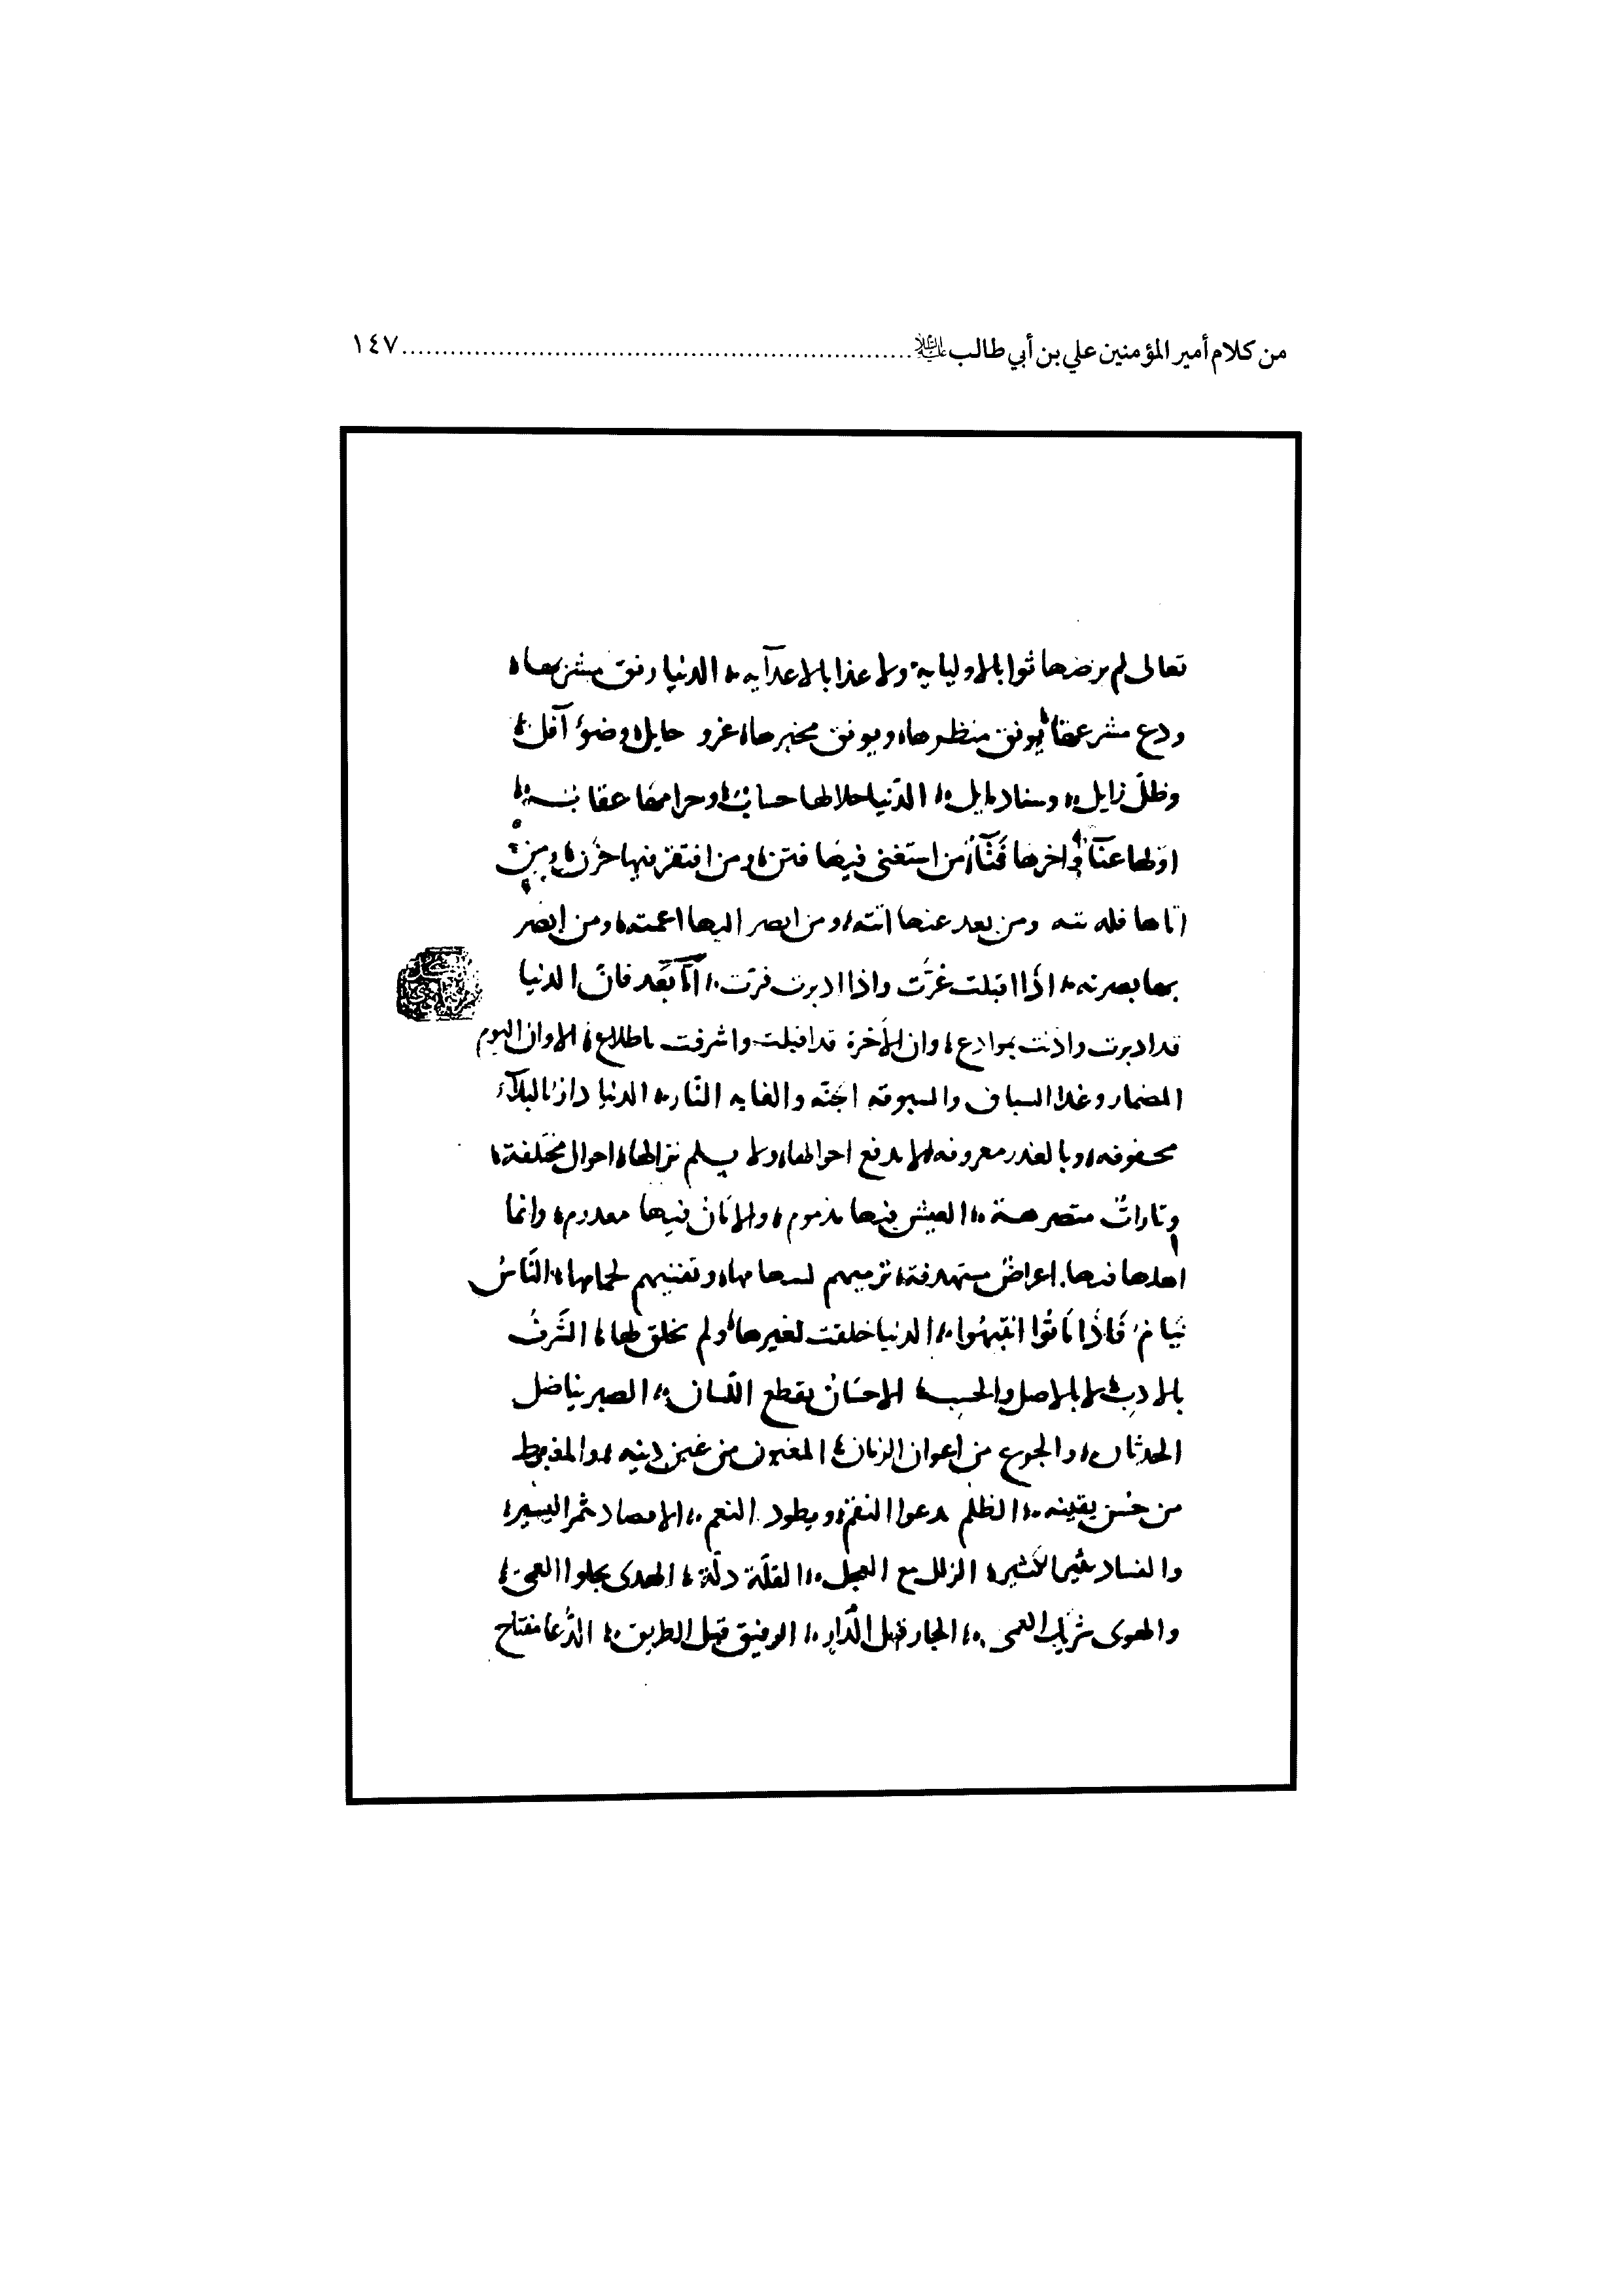 من كلام أمير المؤمنين علي بن أبي طالب عليه السلام ........ ١٤٧
تعالى لم يرضها ثوابا لاوليايه ولا عذابا لاعدآيه الدنيا رنق مشربها
ردغ مشرعها يونق منظرها ويوبق مخبرها غرور حايل وضوء آفل
وظلّ زايل وسناد مايل الدّنيا حلالها حساب وحرامها عقاب
اولها عنآء واخرها فنآء من استغنى فيها فتن ومن افتقر فيها حزن ومن
اتاها فاتته ومن بعد عنها اتته ومن ابصر اليها اعمته ومن ابصر
بها بصرته اذا اقبلت غرّت واذا ادبرت فرّت امّا بَعد فانّ الدنيا
قد ادبرت واذنت بوداع وان الآخرة قد اقبلت واشرفت باطلاع الا وان اليوم
المضمار وغدا السباق والسبقه الجنّه والغايه النّار الدنيا دار بالبلآء
محفوفه وبالغدر معروفه لا يدوم احوالها ولا يسلم نزالها احوال مختلفة
وتارات متصرفة العيش فيها مذموم والامان فيها معدوم وانما
اهلها فيها اغراض مستهدفة ترميهم بسهامها وتفنيهم بحمامها النّاسُ
نيامٌ فَاذا مَاتُوا انتبهُوا الدنيا خلقت لغيرها ولم تخلق لها الشّرفُ
بالادب لا بالاصل والحسب الاحسَانُ يقطع اللّسان الصبر يناضل
الحدثان والجزع من اعوان الزمان المغبون من غبن دينه والمغبوط
من حسُن يقينه الظلم يدعوا النقم ويطرد النعم الاقتصاد يثمر اليسير
والفساد يبير الكثير الزلل مع العجل القلّة ذلّة الهدى يجلوا العمى
والهوى شريك العمى الجار قبل الدّار الرفيق قبل الطريق الدّعا مفتاح